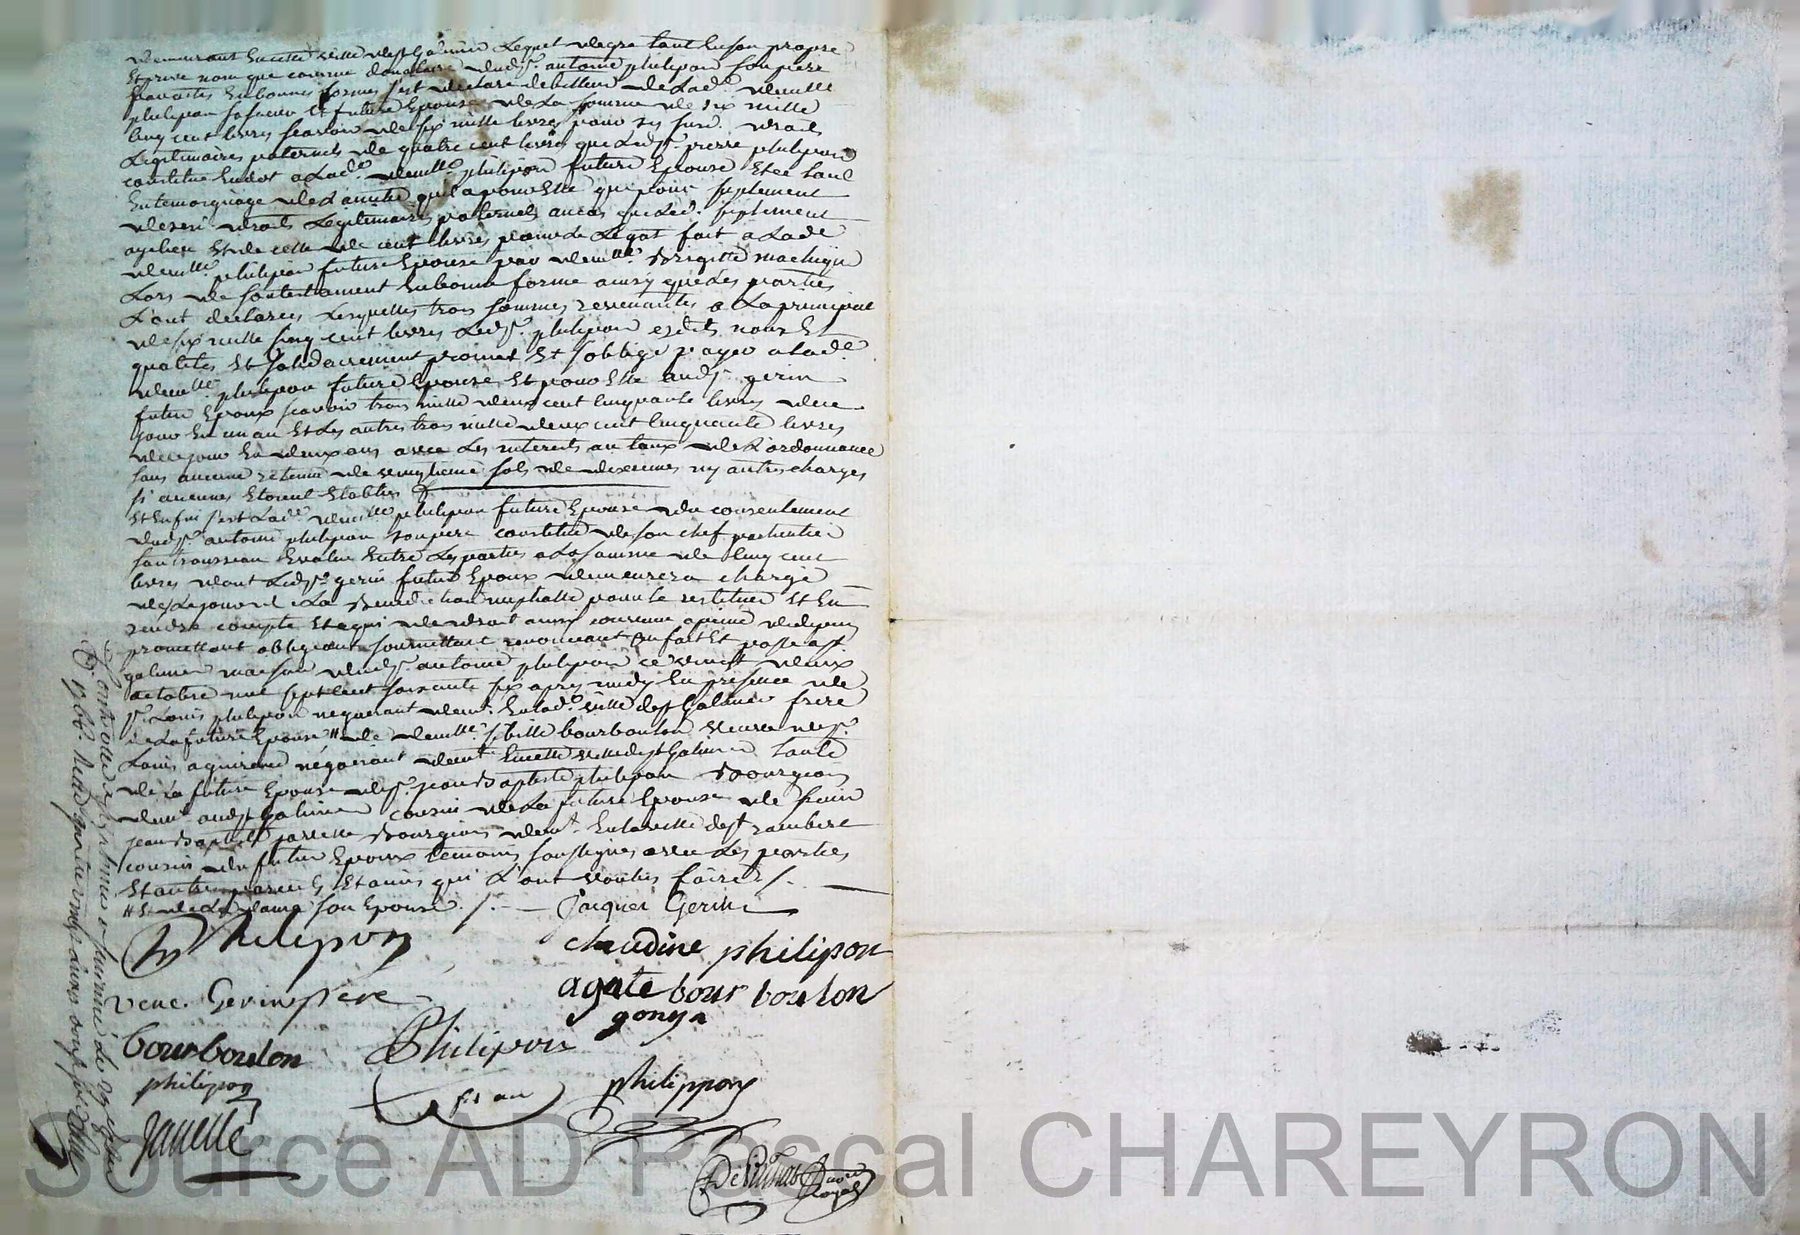 demeurant en cette ville de st Galmier lequel de gre tant en son propre
et prive nom que comme donataire dudt sr. antoine philipon son pere
par actes en bonnes formes s'est declare debiteur de lad. demlle
philipon sa soeur et future Epouse de la somme de six mille
cinq cent livres scavoir de six mille livres pour ses susd. droits
Legitimaires paternels de quatre cent livres que ledsr. pierre philipon
constitue en dot a lad. demlle. philipon future Epouse et ce tant
en temoignage de l'amitie qu'il a pour Elle que pour suplement
de ses droits Legitimaires paternels au cas que led. suplement
ay lieu et de celle de cent livres pour le legat fait a lade
demlle. philipon future Epouse par demlle. Brigitte
Lors de son testament en bonne forme ainsy que les parties
L'ont declarees Lesquelles trois sommes revenantes a la principal
de six mille cinq cent livres ledsr. philipon esdits noms Et
qualites Et solidairement promet Et s'obblige payer a lade.
demlle. philipon future Epouse Et pour Elle audsr. gerin
futur Epoux scavoir trois mille deux cent cinquante livres de ce
jour En un an Et les autres trois mille deux cent cinquante livres
de ce jour En deux ans avec les interets au taux de L'ordonnance
sans aucune retenue de vingtieme sols de dixiemes ny autres charges
si aucunes Etoient Etablies
Et enfin s'est lade. demlle philipon future Epouse du consentement
dudsr. antoine philipon son pere constitue de son chef particulier
son trousseau Evalue Entre les parties a la somme de cinq cent
livres dont ledsr. gerin futur Epoux demeurera charge
des le jour de la Benediction nuptialle pour le restituer Et En
rendre compte Et a qui de droit ainsy convenu a peine de depens
promettant obligeant soumettant renonceant fait Et passe a st
galmier maison dudsr. antoine philipon ce vingt deux
octobre mil sept cent soixante six apres midy En presence de
sr. Louis philipon negociant demt. En lad. ville de st Galmier frere
de la future Epouse # de demlle. sibille bourboulon veuve de sr.
Louis negotiant demt En cette ville de st Galmier tante
de la future Epouse de sr. jean Baptiste philipon Bourgeois
demt. aud st Galmier cousin de la future Epouse de sieur
jean Baptiste javelle Bourgeois demt. En la ville de st rambert
cousin du futur Epoux temoins soussignes avec les parties
Et autres parents Et amis qui L'ont voulus faire ./.
# Et de la dame son Epouse ./. Jacques Gerin
Philipon
claudine philipon
veuc. Gerin pere
agate bourboulon
gonyn
bourboulon
Philipon
philipon
philippon
javelle